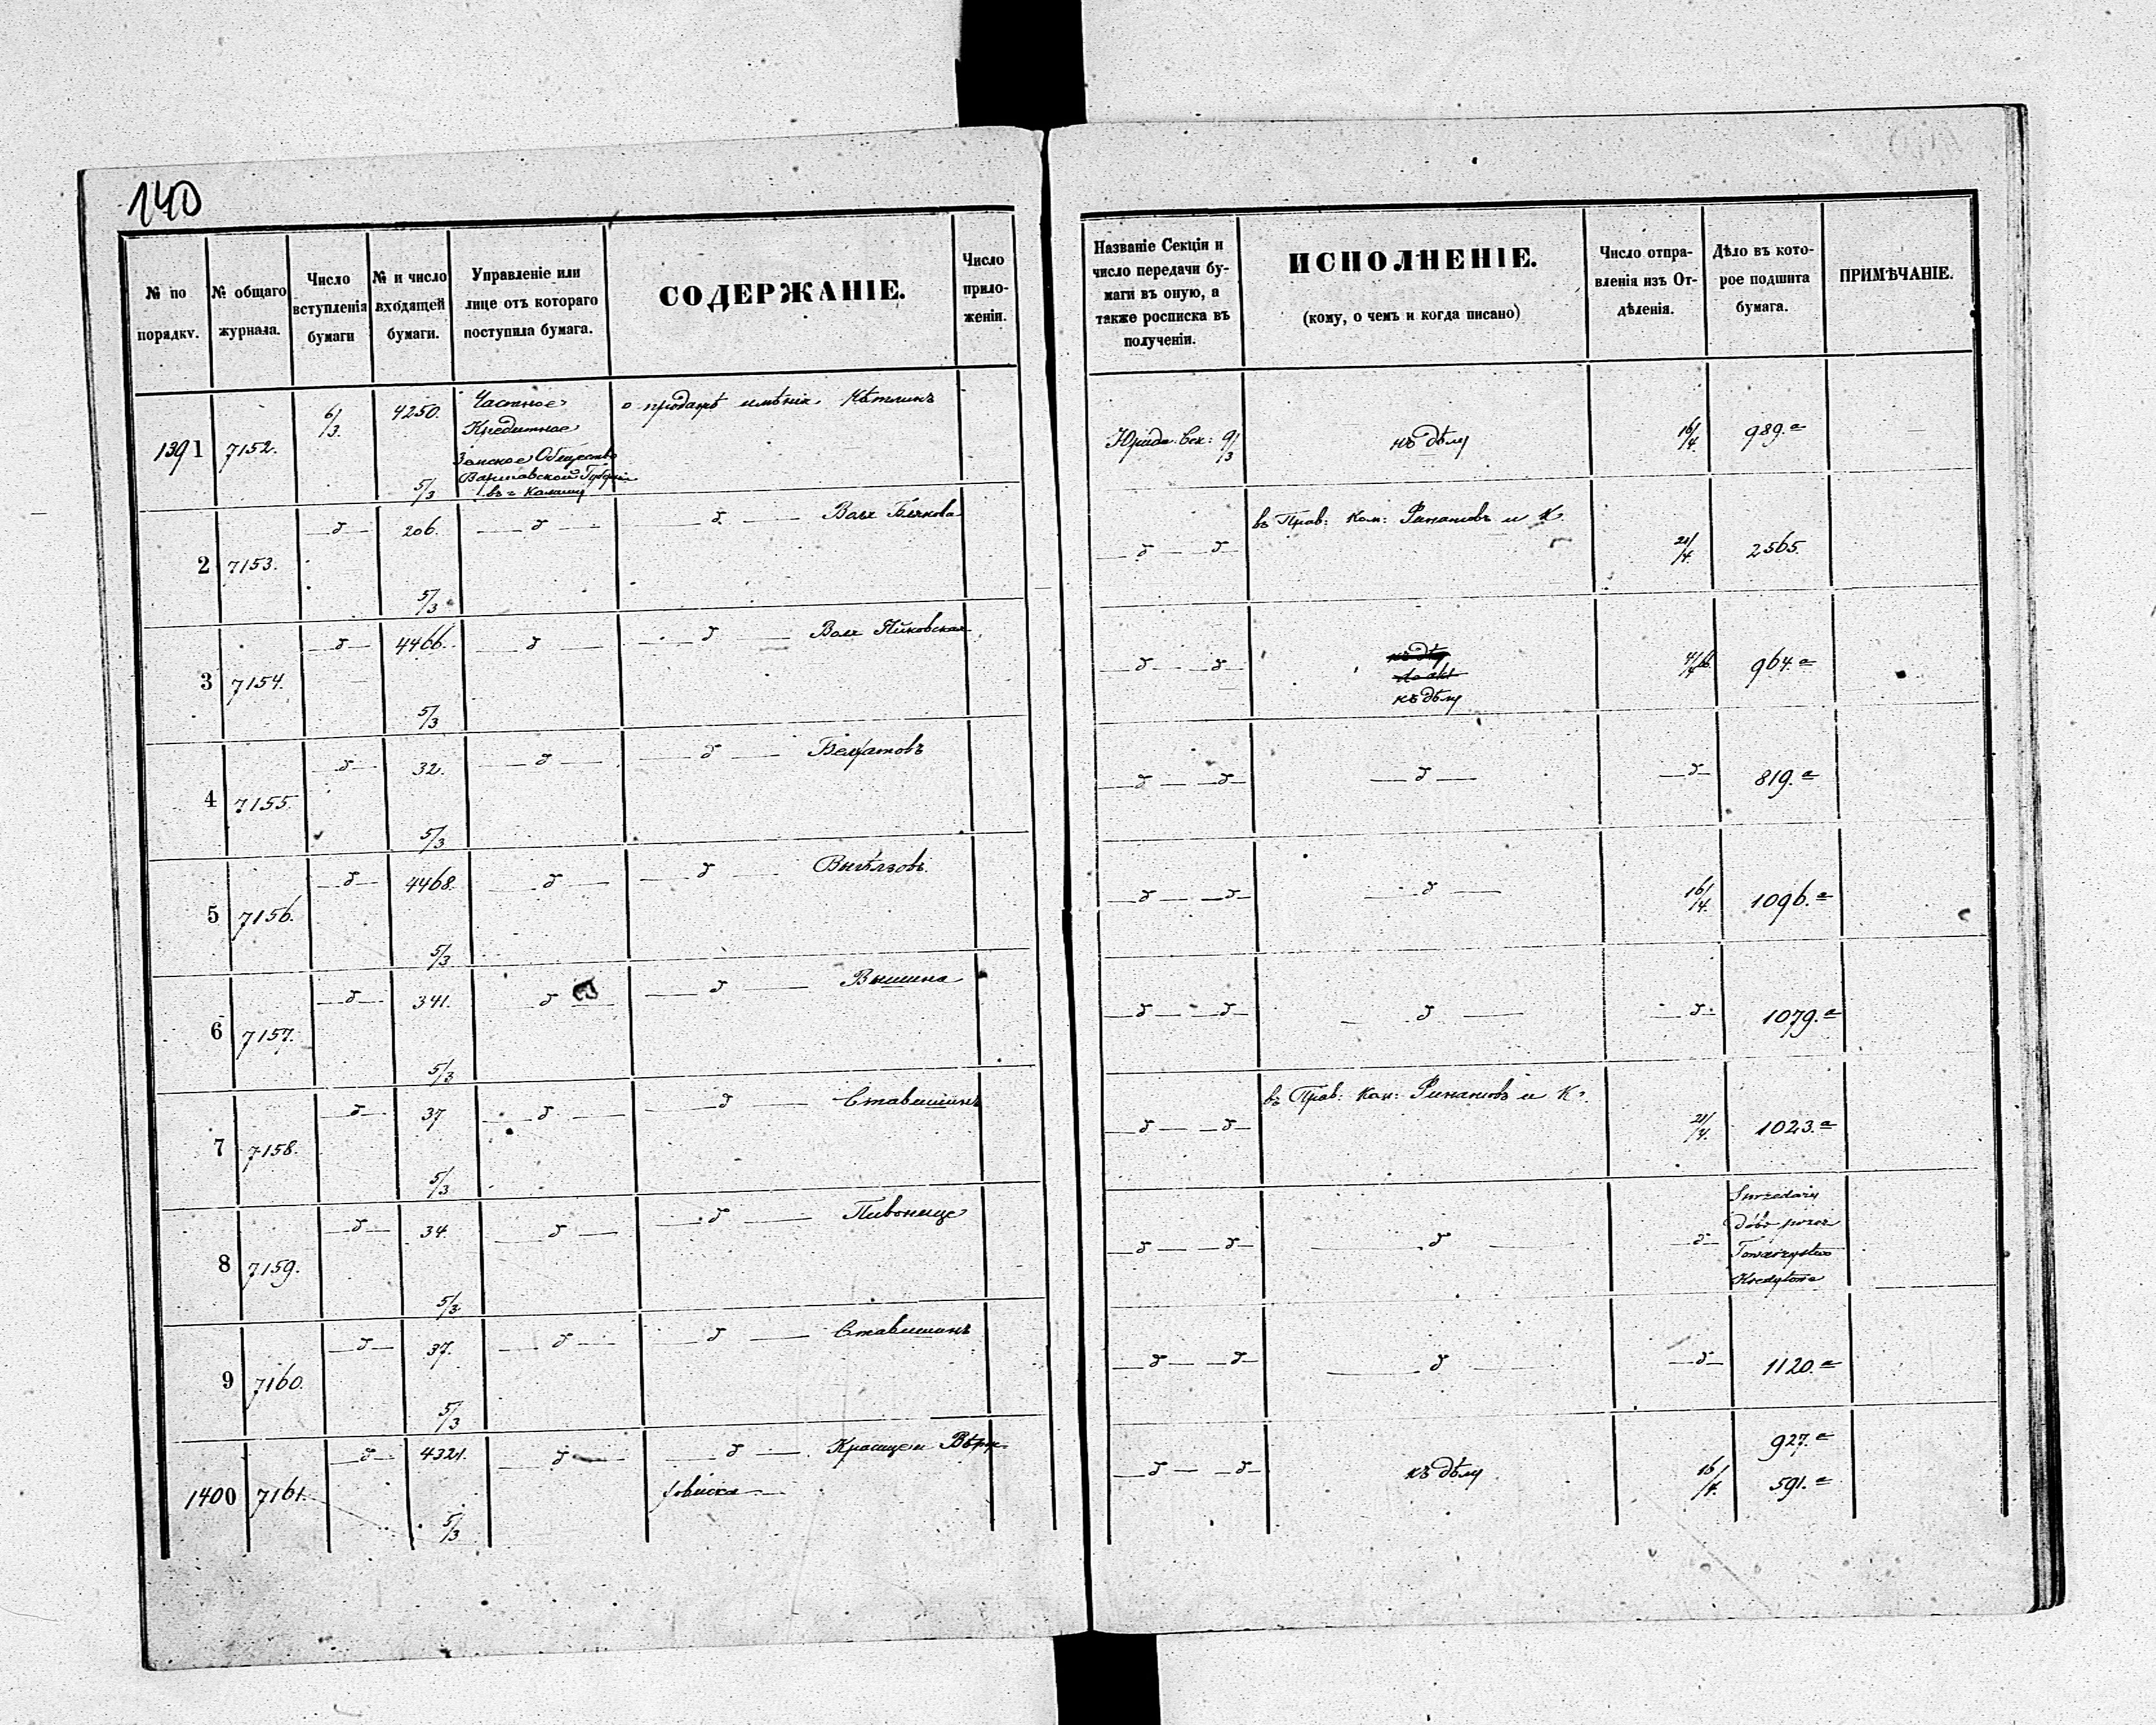 140
№ по порядку.
№ общаго журнала.
Число вступленія бумаги
№ и число входящей бумаги.
Управленіе или лице отъ котораго поступила бумага.
СОДЕРЖАНІЕ.
Число приложеній.
Названіе Секціи и число передачи бумаги въ оную, а также росписка въ полученіи.
ИСПОЛНЕНІЕ.
(кому, о чемъ и когда писано)
Число отправленія изъ Отдѣленія.
Дѣло въ которое подшита бумага.
ПРИМѢЧАНІЕ.
1391 7152. 6/3. 4250. 5/3
Частное
Кредитное
Земское Общество
Варшавской Губерніи
въ г. Калишу
о продажѣ имѣнія Кѣтлинъ
Юрид. Сек: 9/3 къ дѣлу 16/4. 989.а
2 7153. —д— 206. 5/3 —д— —д— Воля
—д— —д— въ Прав: Ком: Финансовъ и К. 21/4. 2565.
3 7154. —д— 4466. 5/3 —д— —д— Воля
—д— —д—
къ дѣлу
do akt
къ дѣлу
964.а
4 7155. —д— 32. 5/3 —д— —д— Белхатовъ
—д— —д— —д— —д— 819.а
5 7156. —д— 4468. 5/3 —д— —д—
—д— —д— —д— 16/4. 1096.а
6 7157. —д— 341. 5/3 —д— —д— Вышина
—д— —д— —д— —д— 1079.а
7 7158. —д— 37 5/3 —д— —д— Ставишинъ
—д— —д— въ Прав: Ком: Финансовъ и К. 21/4. 1023.а
8 7159. —д— 34. 5/3 —д— —д— Пивонице
—д— —д— —д— —д—
Sprzedaży
dóbr przez
Towarzystwo
Kredytowe
9 7160. —д— 37. 5/3 —д— —д— Ставишинъ
—д— —д— —д— —д— 1120.а
1400 7161. —д— 4321. 5/3 —д— —д—
—д— —д— къ дѣлу 16/4. 927.а
591.а